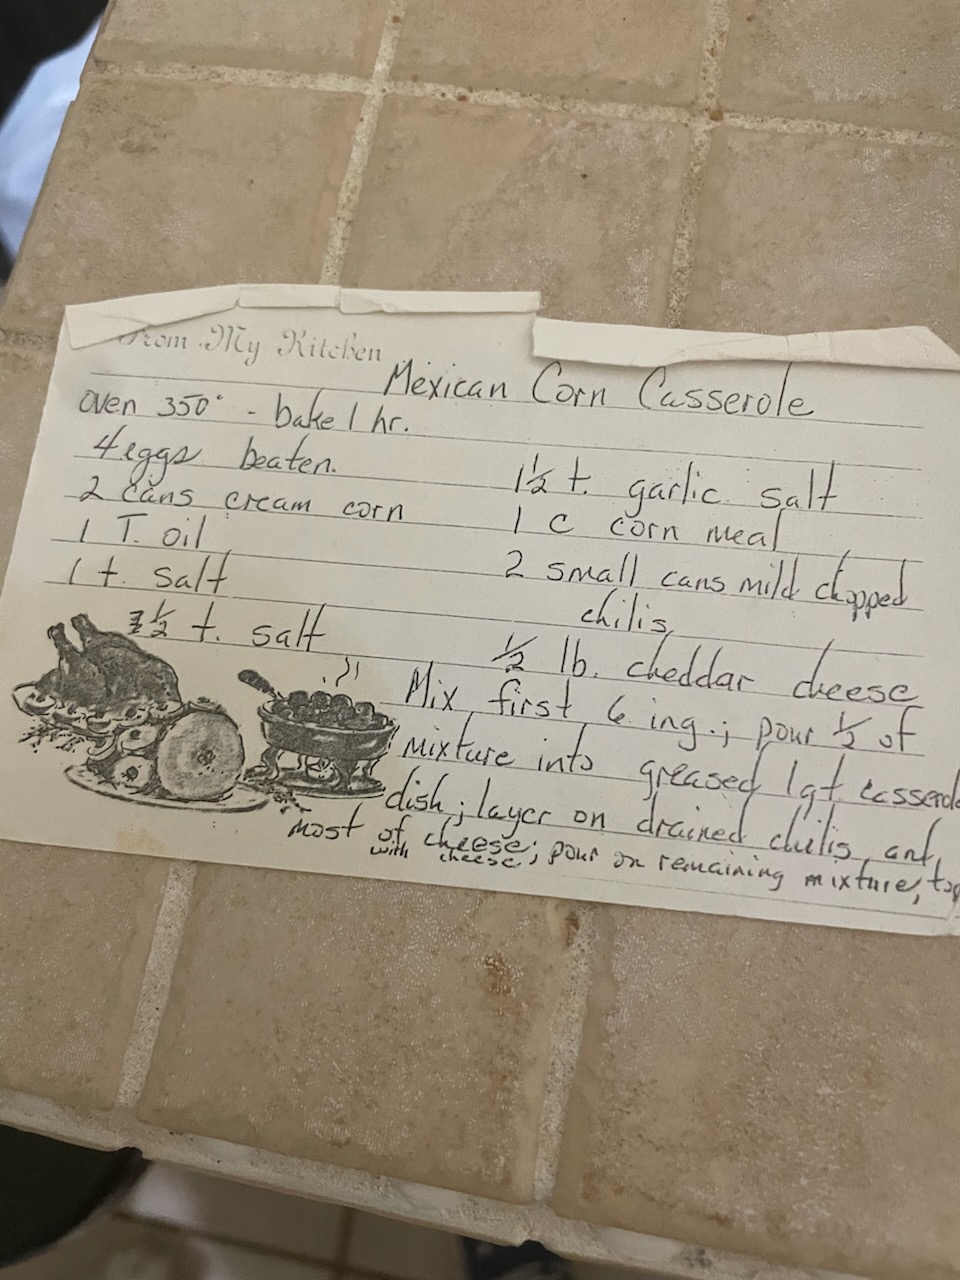 From My Kitchen
Mexican Corn Casserole
oven 350° - bake 1 hr.
4 eggs beaten.
2 cans cream corn
1 T. oil
1 t. salt
1/2 t. salt
1 1/2 t. garlic salt
1 c corn meal
2 small cans mild chopped
chilis
1/2 lb. cheddar cheese
Mix first 6 ing.; pour 1/2 of
mixture into greased 1qt casserole
dish; layer on drained chilis, and
most of cheese; pour on remaining mixture, top
with cheese;